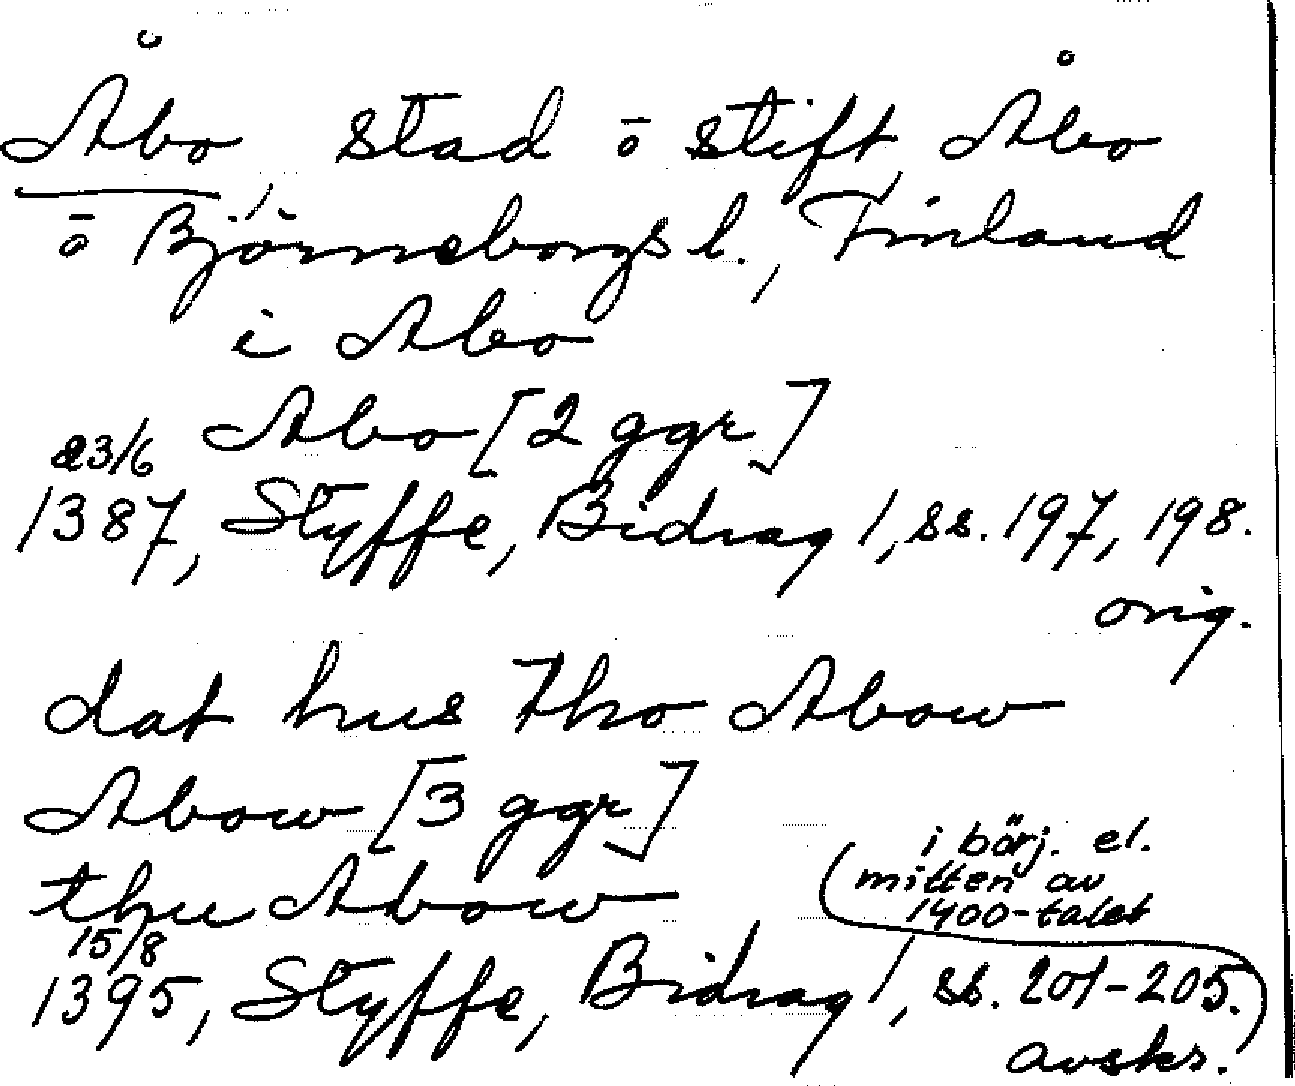 Åbo, stad o stift, Åbo
o Björneborgs l., Finland
i Abo
Abo [2 ggr]
23/6
1387, Styffe, Bidrag 1, ss. 197, 198.
orig.
dat hus tho Abow
Abow [3 ggr]
thu Abow
15/8
1395, Styffe, Bidrag 1, ss. 201-205.
(i börj. el.
mitten av
1400-talet)
avskr.